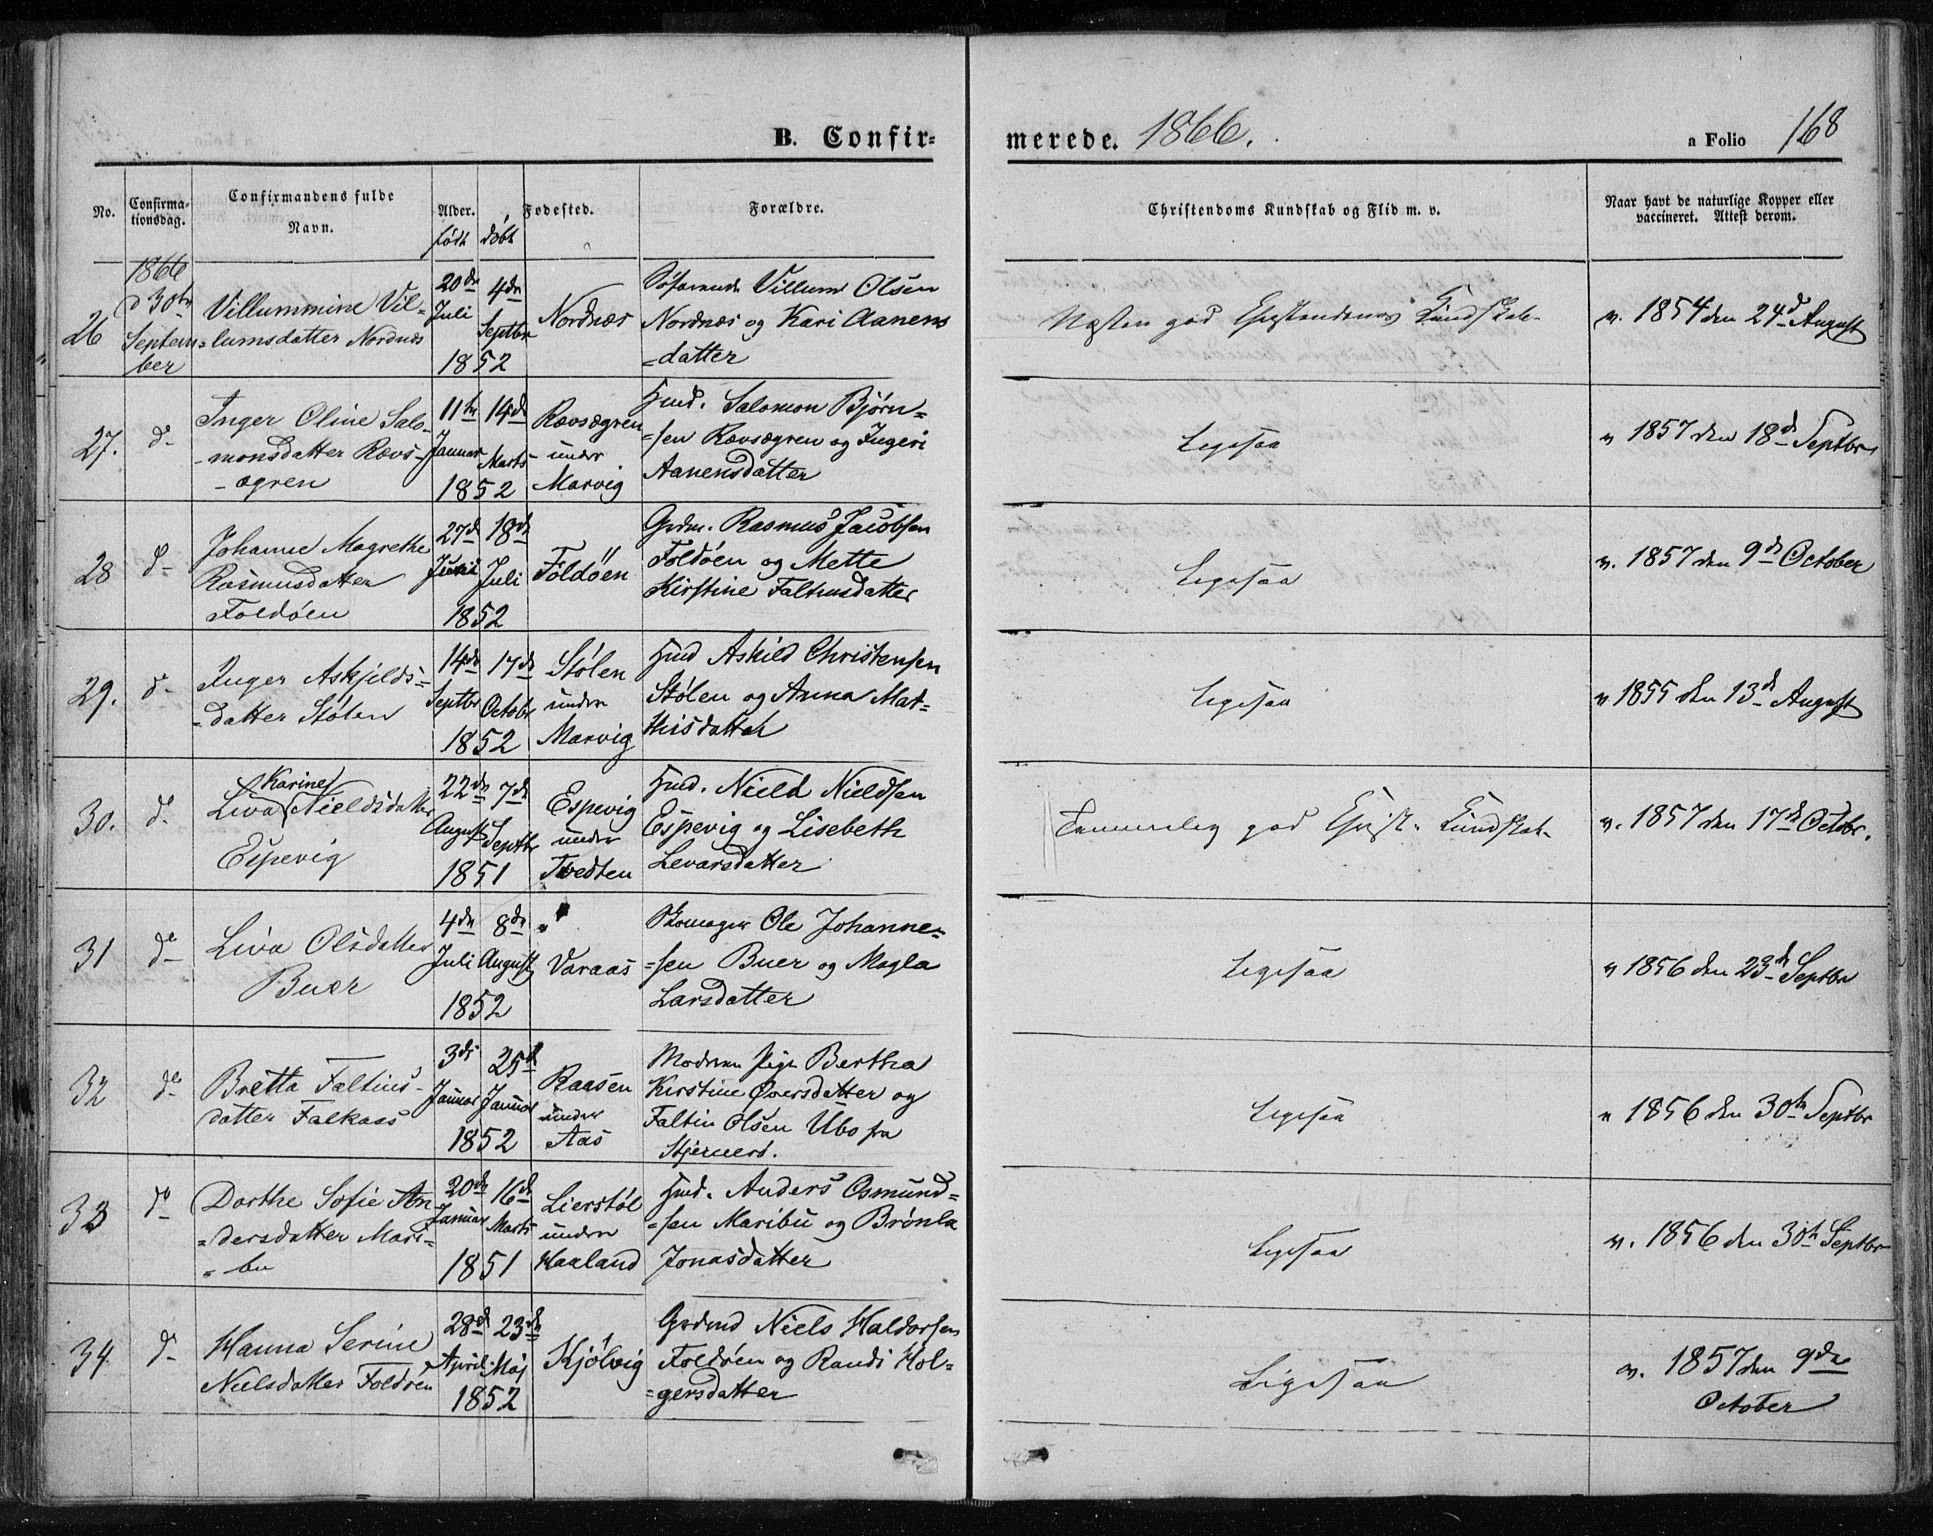 B. Confir=
merede. 1866.
a Folio 168
No.
Confirma-
tionsdag.
Confirmandens fulde
Navn.
Alder.
født døbt
Fødested.
Forældre.
Christendoms Kundskab og Flid m. v.
Naar havt de naturlige Kopper eller
vaccineret. Attest derom.
26
1866
d 30te
Septem
ber
Villummine Vil-
=lumsdatter Nordnæs
20de Juli 4de Septbr 1852
Nordnæs
Søfarende Villum Olsen
Nordnæs og Kari Aanens
=datter
Næsten god Christendoms Kundskab
v. 1854 den 24d August
27. do
Inger Oline Salo-
-monsdatter Rævs-
-ægren
11te Januar 14de Marts 1852
Rævsægren
under
Marvig
Huusd. Salomon Bjørn=
=sen Rævsægren og Ingeri
Aanensdatter
Ligesaa
v 1857 den 18d Septbr
28 do
Johanne Magrethe
Rasmusdatter
Foldøen
27de Juni 18de Juli 1852
Foldøen
Grdm. Rasmus Jacobsen
Foldøen og Mette
Kirstine Faltinsdatter
Ligesaa
v. 1857 den 9de October
29. do
Inger Askjelds=
=datter Stølen
14de Septbr 17de Octobr 1852
Stølen
under
Marvig
Huusd Askild Christensen
Stølen og Anna Mat=
thisdatter
Ligesaa
v 1855 den 13de August
30. do
Karine
Liva Nieldsdatter
Espevig
22de August 7de Septbr 1851
Espevig
under
Tvedten
Huusd. Nield Nieldsen
Espevig og Lisebeth
Levarsdatter
Temmelig god Christ. Kundskab
v. 1857 den 17de Octobr.
31 do
Liva Olsdatter
Buer
4de Juli 8de August 1852
Varaas
Skomager Ole Johanne=
=sen Buer og Magla
Larsdatter
Ligesaa
v 1856 den 23de Septbr
32 do
Bretta Faltins-
datter Falkaas
3de Januar 25d Januar 1852
Raasen
under
Aas
Moderen Pige Bertha
Kirstine Oversdatter og
Faltin Olsen Ubo fra
Stjernerd.
Ligesaa
v 1856 den 30te Septbr
33 do
Dorthe Sofie An
=dersdatter Mari=
=bu
20de Januar 16de Marts 1851
Lierstøl
under
Haaland
Huusd. Anders Osmund=
=sen Maribu og Brønla
Jonasdatter
Ligesaa
v. 1856 den 30te Septbr
34 do
Hanna Serine
Nielsdatter Foldøen
28de April 23de Maj 1852
Kjølvig
Grdmd Niels Haldorsen
Foldøen og Randi Hol=
=gersdatter
Ligesaa
v. 1857 den 9de
October